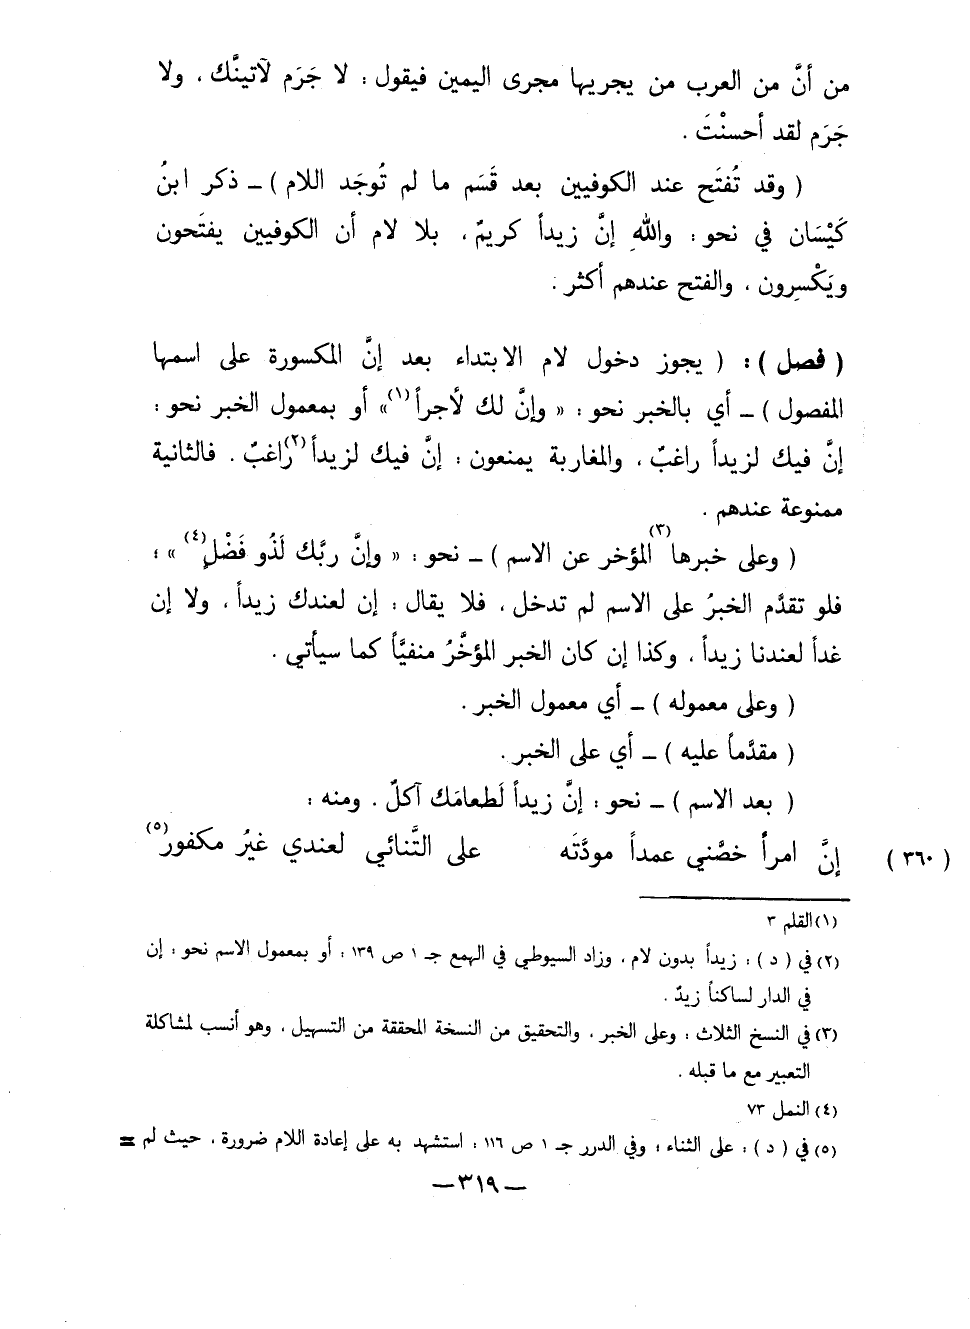 من أنَّ من العرب من يجريها مجرى اليمين فيقول : لا جَرَم لآتينَّك ، ولا
جَرَم لقد أحسنْتَ .
( وقد تُفتَح عند الكوفيين بعد قَسَم ما لم تُوجَد اللام ) – ذكر ابنُ
كَيْسَان في نحو : واللّٰهِ إنَّ زيداً كريمٌ ، بلا لام أن الكوفيين يفتَحون
ويَكْسِرون ، والفتح عندهم أكثر .
( فصل ) : ( يجوز دخول لام الابتداء بعد إنَّ المكسورة على اسمها
المفصول ) – أي بالخبر نحو : « وإنَّ لك لأجراً(١) » أو بمعمول الخبر نحو :
إنَّ فيك لزيداً راغبٌ ، والمغاربة يمنعون : إنَّ فيك لزيداً(٢) راغبٌ . فالثانية
ممنوعة عندهم .
( وعلى خبرها(٣) المؤخر عن الاسم ) – نحو : « وإنَّ ربَّك لَذُو فَضْلٍ(٤) » ؛
فلو تقدَّم الخبرُ على الاسم لم تدخل ، فلا يقال : إن لعندك زيداً ، ولا إن
غداً لعندنا زيداً ، وكذا إن كان الخبر المؤخَّرُ منفيَّاً كما سيأتي .
( وعلى معموله ) – أي معمول الخبر .
( مقدَّماً عليه ) – أي على الخبر .
( بعد الاسم ) – نحو : إنَّ زيداً لَطعامَك آكلٌ . ومنه :
( ٣٦٠ ) إنَّ امرأً خصَّني عمداً مودَّتَه على التَّنائي لعندي غيرُ مكفور(٥)
(١) القلم ٣
(٢) في ( د ) : زيداً بدون لام ، وزاد السيوطي في الهمع جـ ١ ص ١٣٩ : أو بمعمول الاسم نحو : إن
في الدار لساكناً زيدٌ .
(٣) في النسخ الثلاث : وعلى الخبر ، والتحقيق من النسخة المحققة من التسهيل ، وهو أنسب لمشاكلة
التعبير مع ما قبله .
(٤) النمل ٧٣
(٥) في ( د ) : على الثناء ؛ وفي الدرر جـ ١ ص ١١٦ : استشهد به على إعادة اللام ضرورة ، حيث لم =
– ٣١٩ –